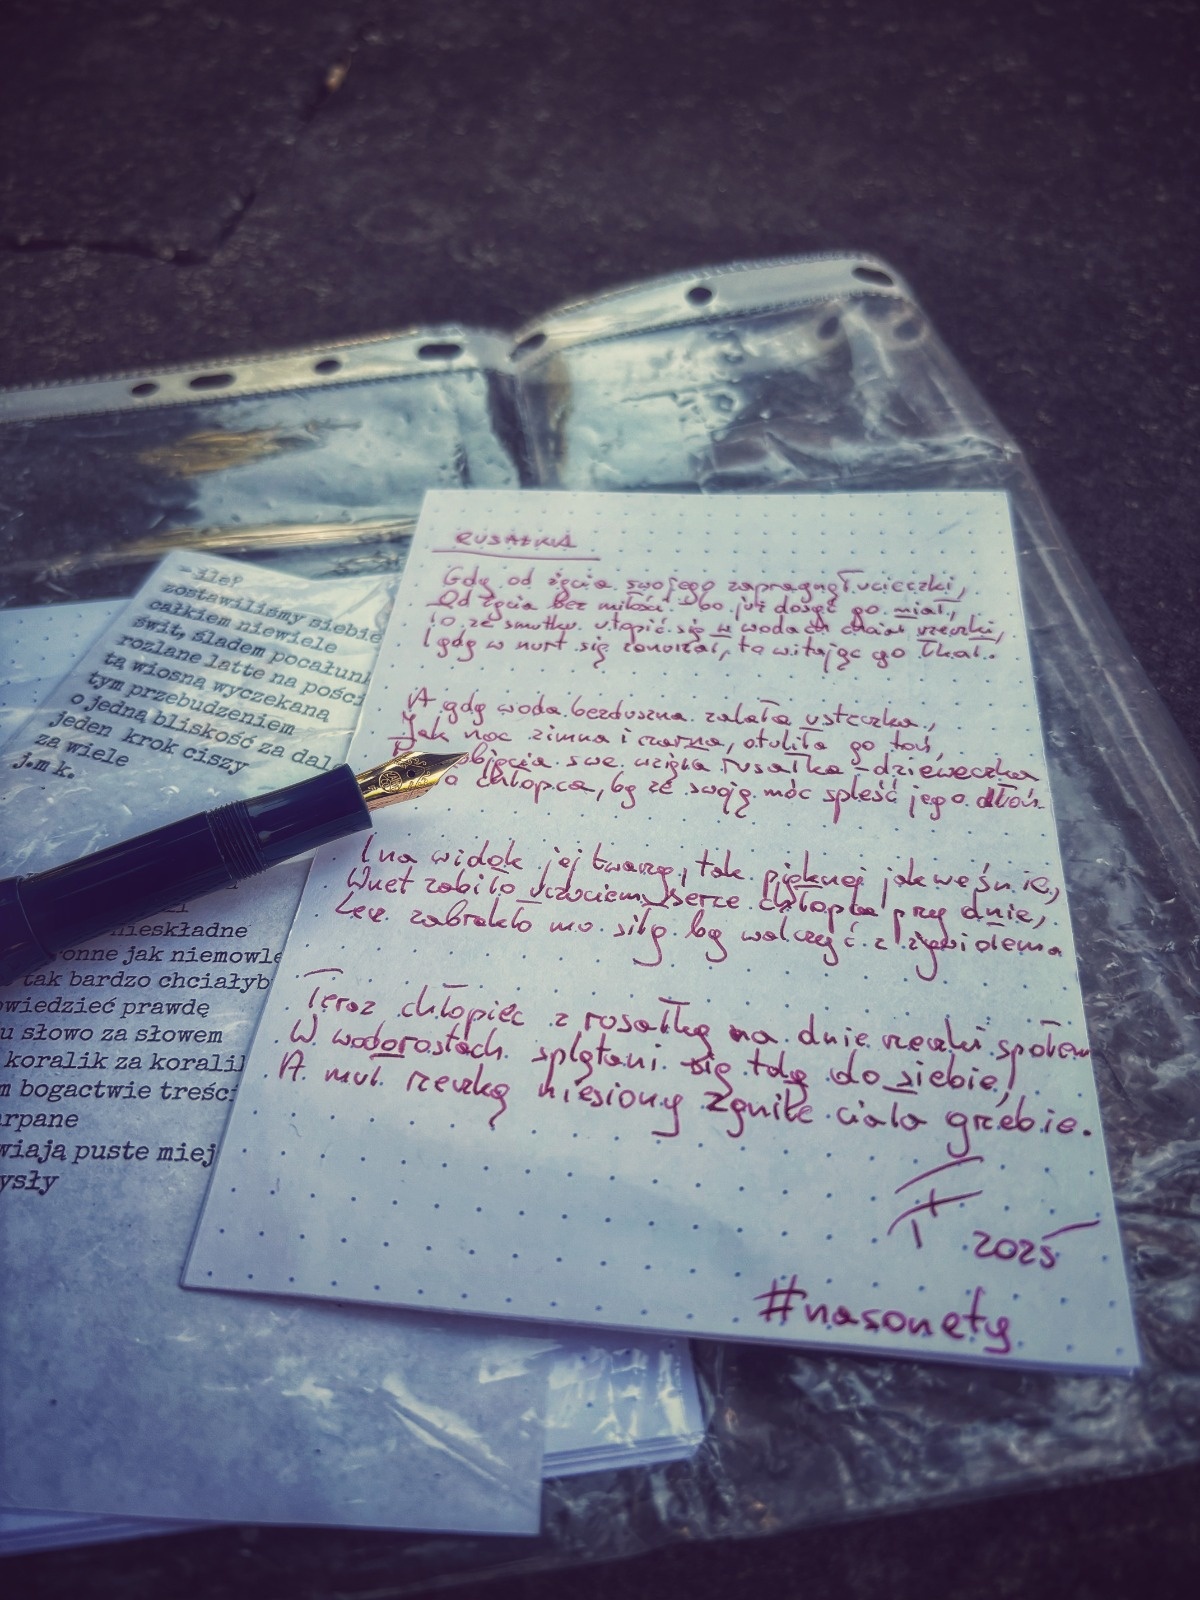 RUSAŁKA
Gdy od życia swojego zapragnął ucieczki,
Od życia bez miłości - bo już dosyć go miał,
To ze smutku utopić się w wodach chciał rzeczki,
I gdy w nurt się zanurzał, to witając go łkał.
A gdy woda bezduszna zalała usteczka,
Jak noc zimna i czarna, otuliła go toń,
objęcia swe wzięła rusałka - dzieweczka
chłopca, by ze swoją móc spleść jego dłoń.
I na widok jej twarzy, tak pięknej jak we śnie,
Wnet zabiło uczuciem serce chłopca przy dnie,
Lecz zabrakło mu siły by walczyć z żywiołem
Teraz chłopiec z rusałką na dnie rzeczki społem
W wodorostach splątani się tulą do siebie,
A muł rzeczką niesiony zgniłe ciała grzebie.
2025
#nasonety
- ile?
zostawiliśmy siebie
całkiem niewiele
świt, śladem pocałunk
rozlane latte na pości
tą wiosną wyczekaną
tym przebudzeniem
o jedną bliskość za dal
jeden krok ciszy
za wiele
j.m k.
nieskładne
ronne jak niemowlę
tak bardzo chciałyb
owiedzieć prawdę
u słowo za słowem
koralik za koralik
m bogactwie treści
arpane
wiają puste miej
ysły